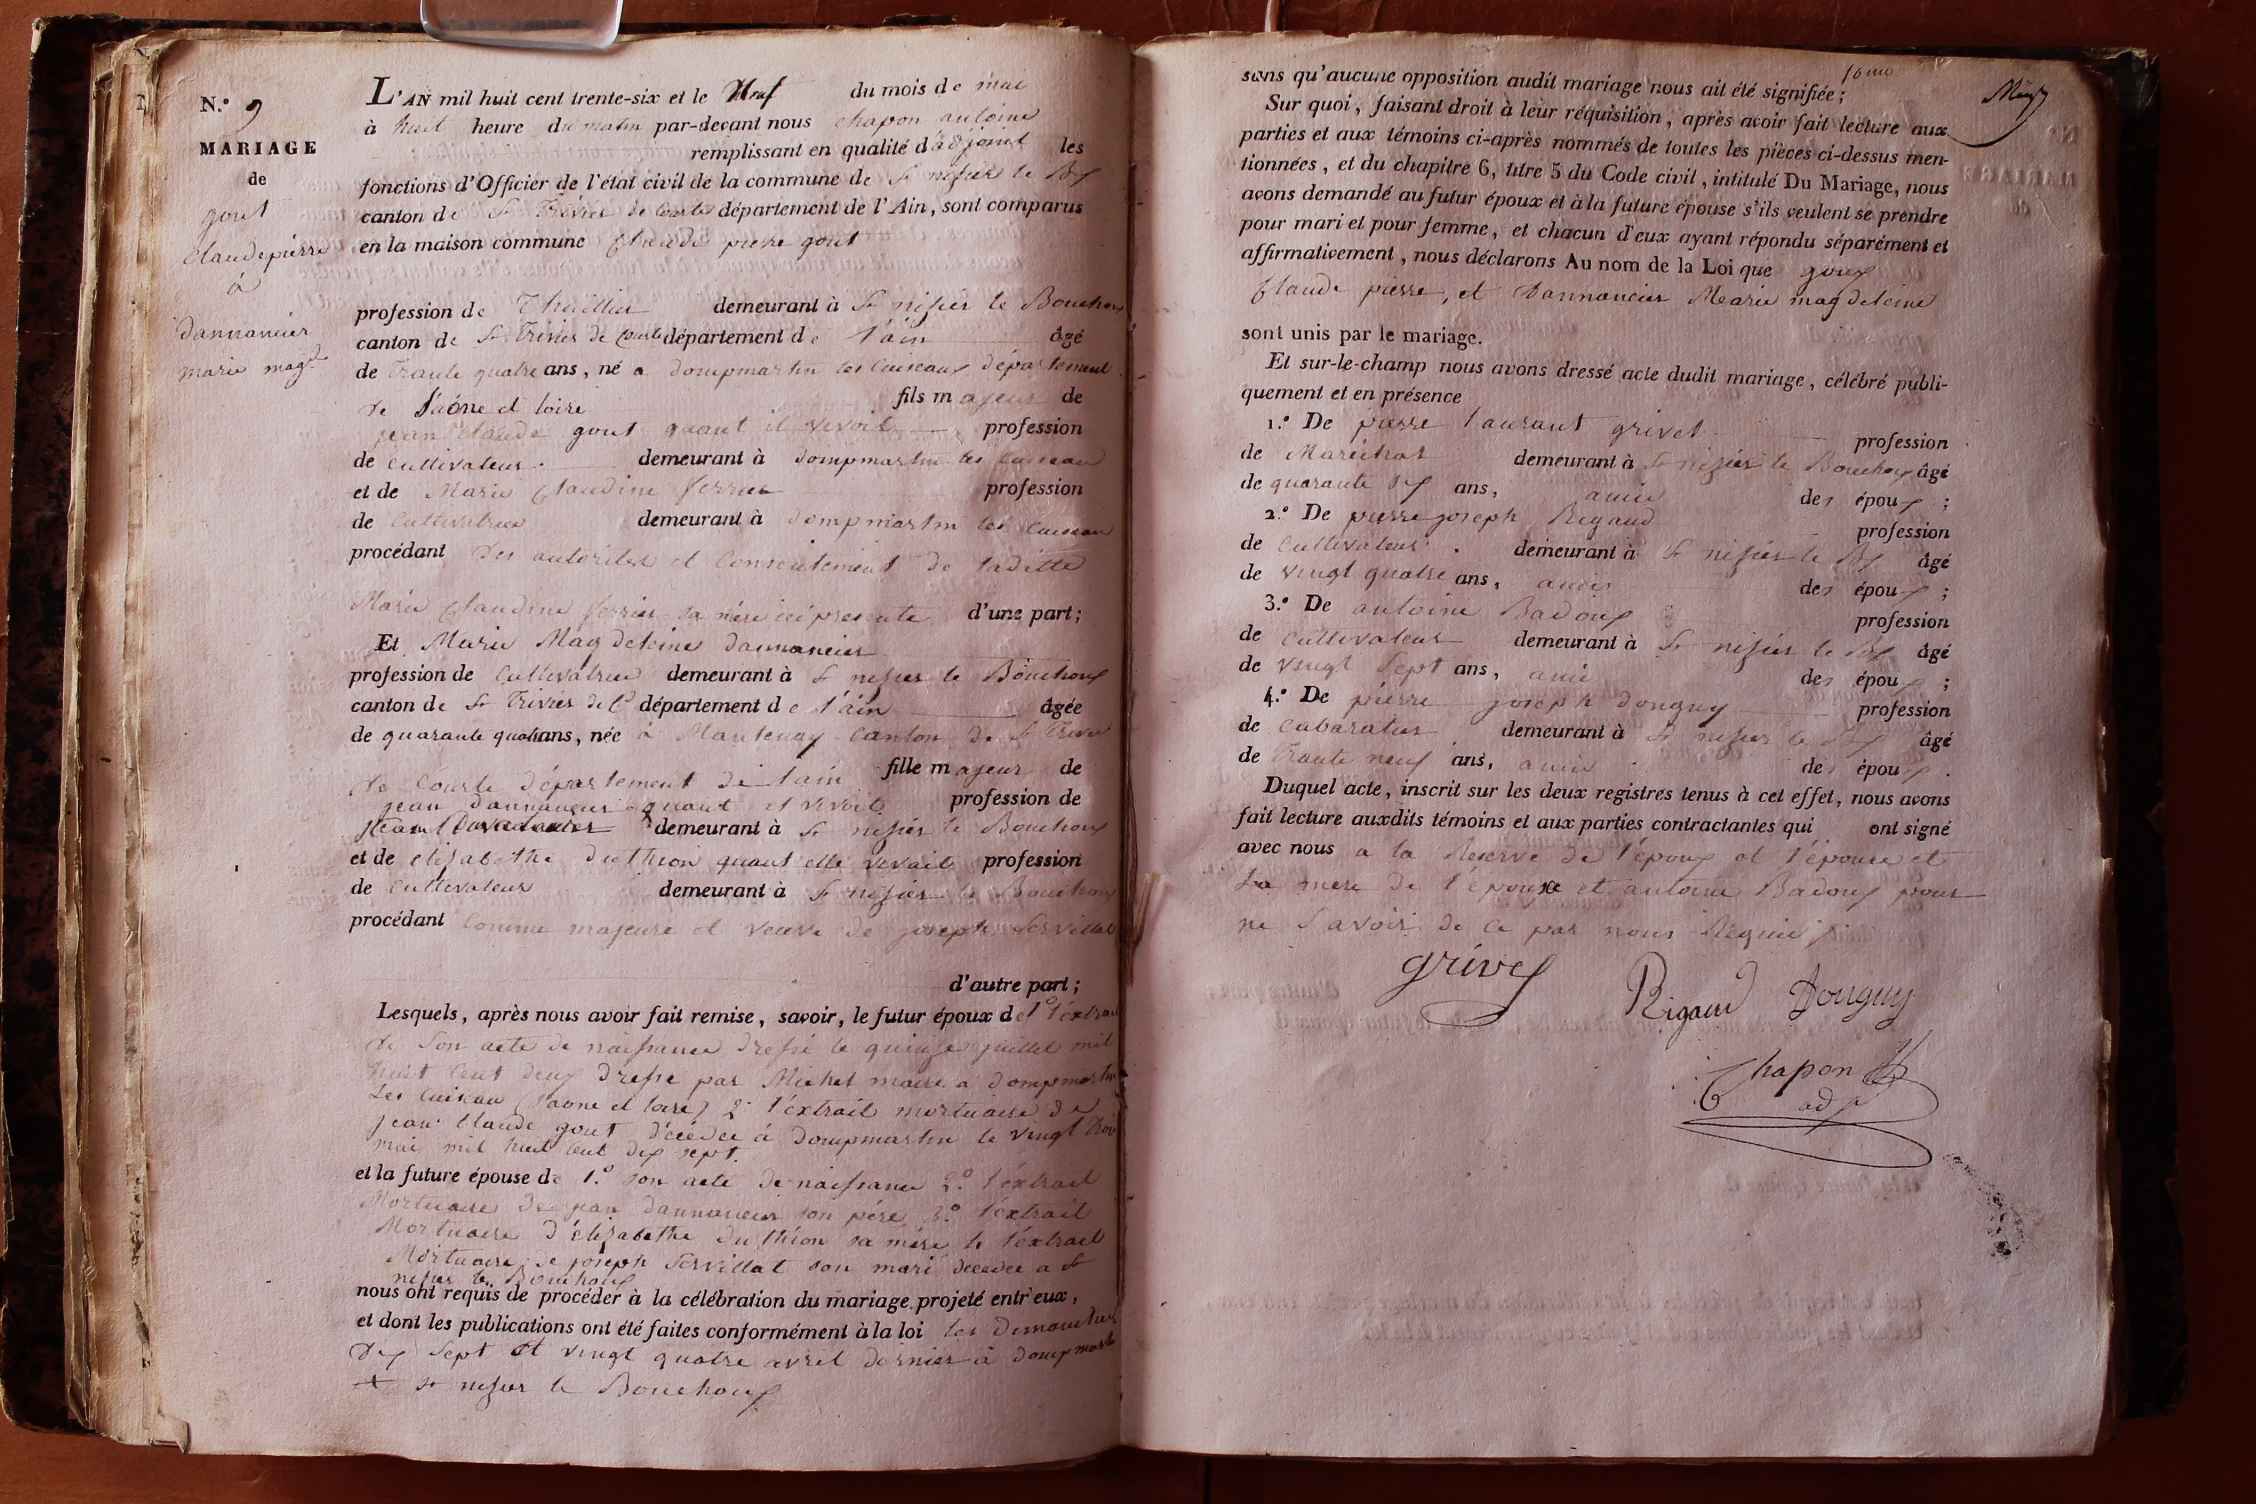 N.º 9
MARIAGE
de
gout
Claude pierre
à
dannancier
marie mag.de
L'AN mil huit cent trente-six et le Neuf du mois de mai
à huit heure du matin par-devant nous chapon antoine
remplissant en qualité d'adjoint les
fonctions d'Officier de l'état civil de la commune de St nisier le Bx
canton de St Trivier de Courtes département de l'Ain, sont comparus
en la maison commune Claude pierre gout
profession de demeurant à St nisier le Bouchoux
canton de St Trivier de Courte département de l'ain âgé
de Trante quatre ans, né a dompmartin les Cuiseaux département
de Saône et loire fils majeur de
jean Claude gout quant il vivoit profession
de Cultivateur demeurant à dompmartin les Cuiseau
et de Marie Claudine ferrier profession
de Cultivatrice demeurant à dompmartin les Cuiseau
procédant des autorites et Consentement de laditte
Marie Claudine ferrier sa mère ici presente d'une part;
Et Marie Magdeleine dannancier
profession de Cultivatrice demeurant à St nisier le Bouchoux
canton de St Trivier de C département de l'ain âgée
de quarante quatre ans, née à Mantenay Canton de St Trivier
de Courte département de l'ain fille majeur de
jean dannancier quant il vivoit profession de
demeurant à St nisier le Bouchoux
et de elisabethe duthion quant elle vivait profession
de Cultivateur demeurant à St nisier le Bouchoux
procédant Comme majeure et veuve de joseph Servillat
d'autre part;
Lesquels, après nous avoir fait remise, savoir, le futur époux de 1º l'extrait
de Son acte de naissance dressé le quinze juillet mil
huit Cent deux dressé par Michel maire a dompmartin
Les Cuiseau (Saone et loire) 2º l'extrait mortuaire de
jean Claude gout décédée à dompmartin le vingt trois
mai mil huit Cent dix sept.
et la future épouse de 1.º son acte de naissance 2.º l'éxtrait
Mortuaire de jean dannancier son père 3.º l'éxtrait
Mortuaire d'élisabethe duthion sa mère le l'éxtrait
Mortuaire de joseph Servillat son mari décédée a St
nisier le Bouchoux
nous ont requis de procéder à la célébration du mariage projeté entr'eux,
et dont les publications ont été faites conformément à la loi les dimanches
dix Sept et vingt quatre avril dernier à dompmartin
et St nisier le Bouchoux
sans qu'aucune opposition audit mariage nous ait été signifiée;
Sur quoi, faisant droit à leur réquisition, après avoir fait lecture aux
parties et aux témoins ci-après nommés de toutes les pièces ci-dessus men-
tionnées, et du chapitre 6, titre 5 du Code civil, intitulé Du Mariage, nous
avons demandé au futur époux et à la future épouse s'ils veulent se prendre
pour mari et pour femme, et chacun d'eux ayant répondu séparément et
affirmativement, nous déclarons Au nom de la Loi que goux
Claude pierre, et Dannancier Marie magdeleine
sont unis par le mariage.
Et sur-le-champ nous avons dressé acte dudit mariage, célébré publi-
quement et en présence
1.º De pierre laurant grivet profession
de Marechal demeurant à St nisier le Bouchoux âgé
de quarante six ans, amie des époux;
2.º De pierre joseph Rigaud profession
de Cultivateur demeurant à St nisier le Bx âgé
de vingt quatre ans, amie des époux;
3.º De antoine Badoux profession
de Cultivateur demeurant à St nisier le Bx âgé
de vingt Sept ans, amie des époux;
4.º De pierre joseph donguy profession
de Cabaratier demeurant à St nisier le Bx âgé
de Trante neuf ans, amie des époux.
Duquel acte, inscrit sur les deux registres tenus à cet effet, nous avons
fait lecture auxdits témoins et aux parties contractantes qui ont signé
avec nous a la Reserve de l'époux et l'épouse et
la mere de l'époux et antoine Badoux pour
ne Savoir de ce par nous Requis
grivet
Rigaud Donguy
Chapon
adj